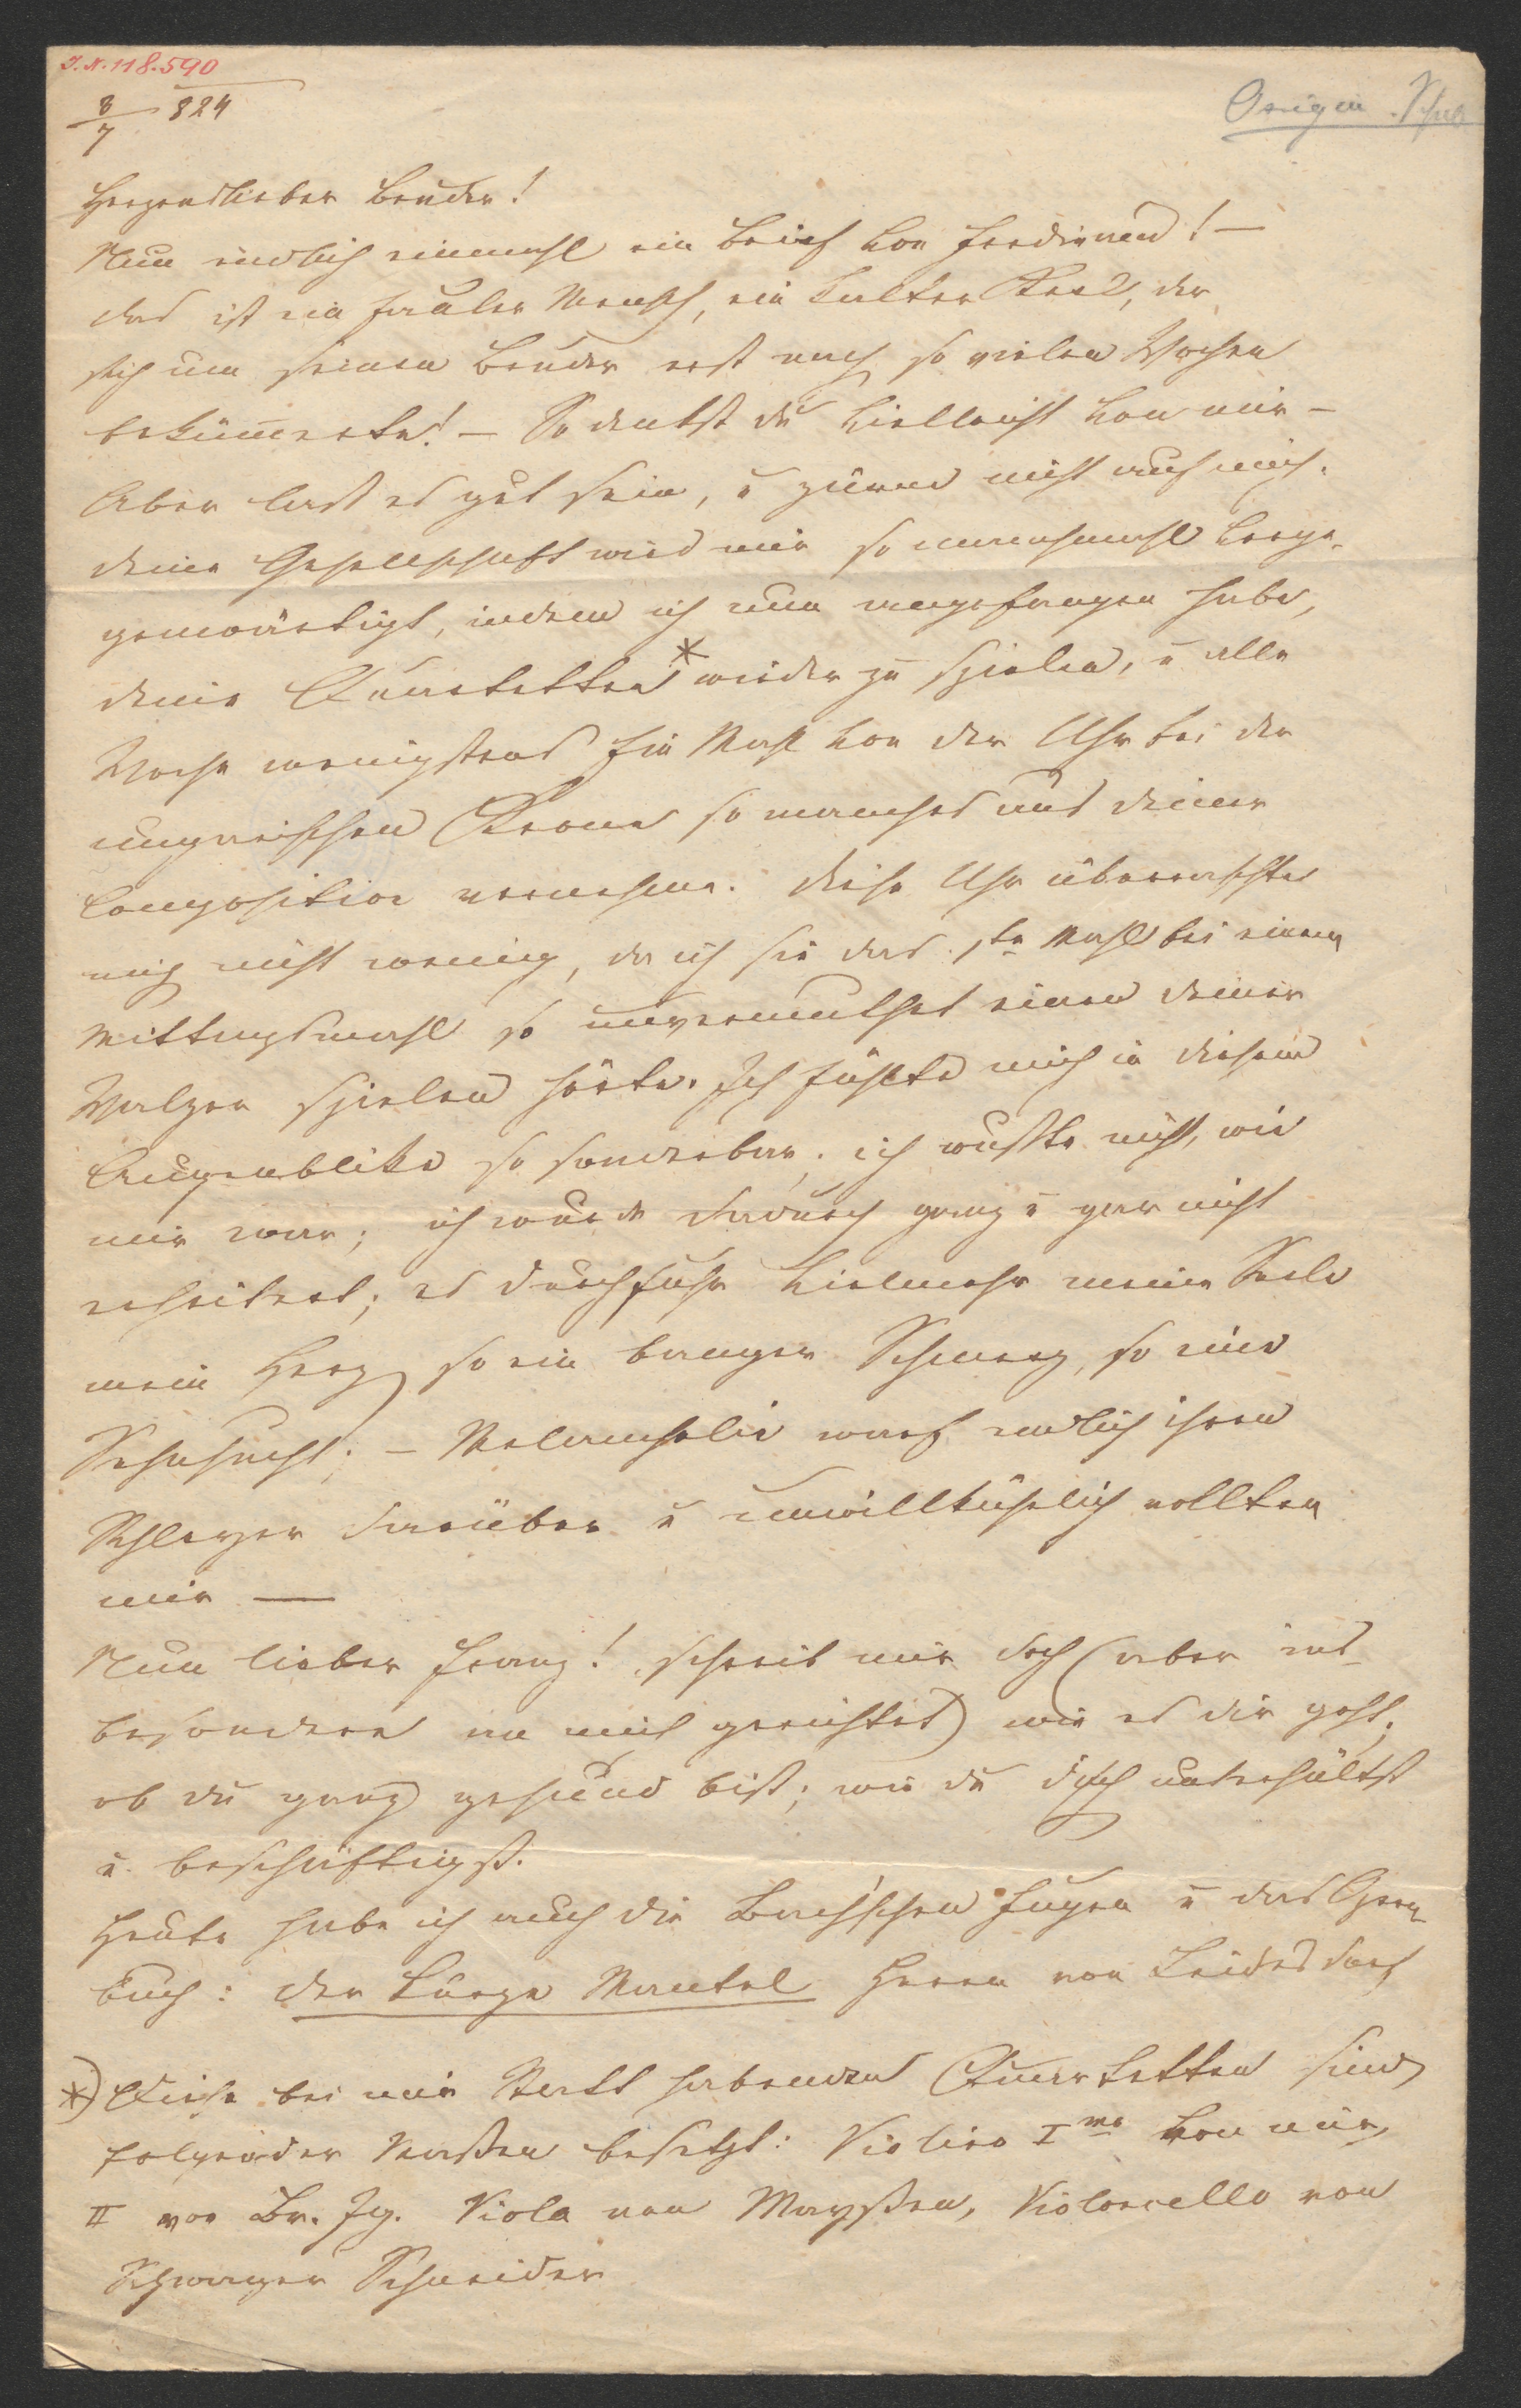 I. N. 118.590
3/7 824
Origin. Schub
Herzenslieber Bruder!
Nun endlich einmahl ein Brief von Ferdinand! —
das ist ein fauler Mensch, ein kalter Kerl, der
sich um seinen Bruder erst nach so vielen Wochen
bekümmerte! — So denkst du vielleicht von mir —
Aber laß es gut sein, u zürne nicht auf mich.
deine Gesellschaft wird mir so manchmahl verge-
genwärtigt, indem ich nun angefangen habe,
deine Quartetten * wieder zu spielen, u alle
Woche wenigstens Ein Mahl von der Uhr bei der
ungarischen Krone so manches aus deiner
Composition vernehme. diese Uhr überraschte
mich nicht wenig, da ich sie das 1te Mahl bei einem
Mittagsmahl so unvermuthet einen deiner
Walzer spielen hörte. Ich fühlte mich in diesem
Augenblike so sonderbar; ich wußte nicht, wie
mir war; ich wurde dadurch ganz u gar nicht
erheitert; es durchfuhr vielmehr meine Seele
mein Herz so ein banger Schmerz, so eine
Sehnsucht; — Melancholie warf endlich ihren
Schleyer darüber u unwillkührlich rollten
mir —
Nun lieber Franz! schreib mir doch (aber ins-
besondere an mich gerichtet) wie es dir geht;
ob du ganz gesund bist; wie du dich unterhältst
u. beschäftigst.
Heute habe ich auch die Bach'schen Fugen u das Opern
buch: der kurze Mantel Herrn von Leidesdorf
*) Diese bei mir Statt habenden Quartetten sind
folgender Maßen besetzt: Violino Imo von mir,
II von Br. Ig. Viola von Mayßen, Violoncello von
Schwager Schneider